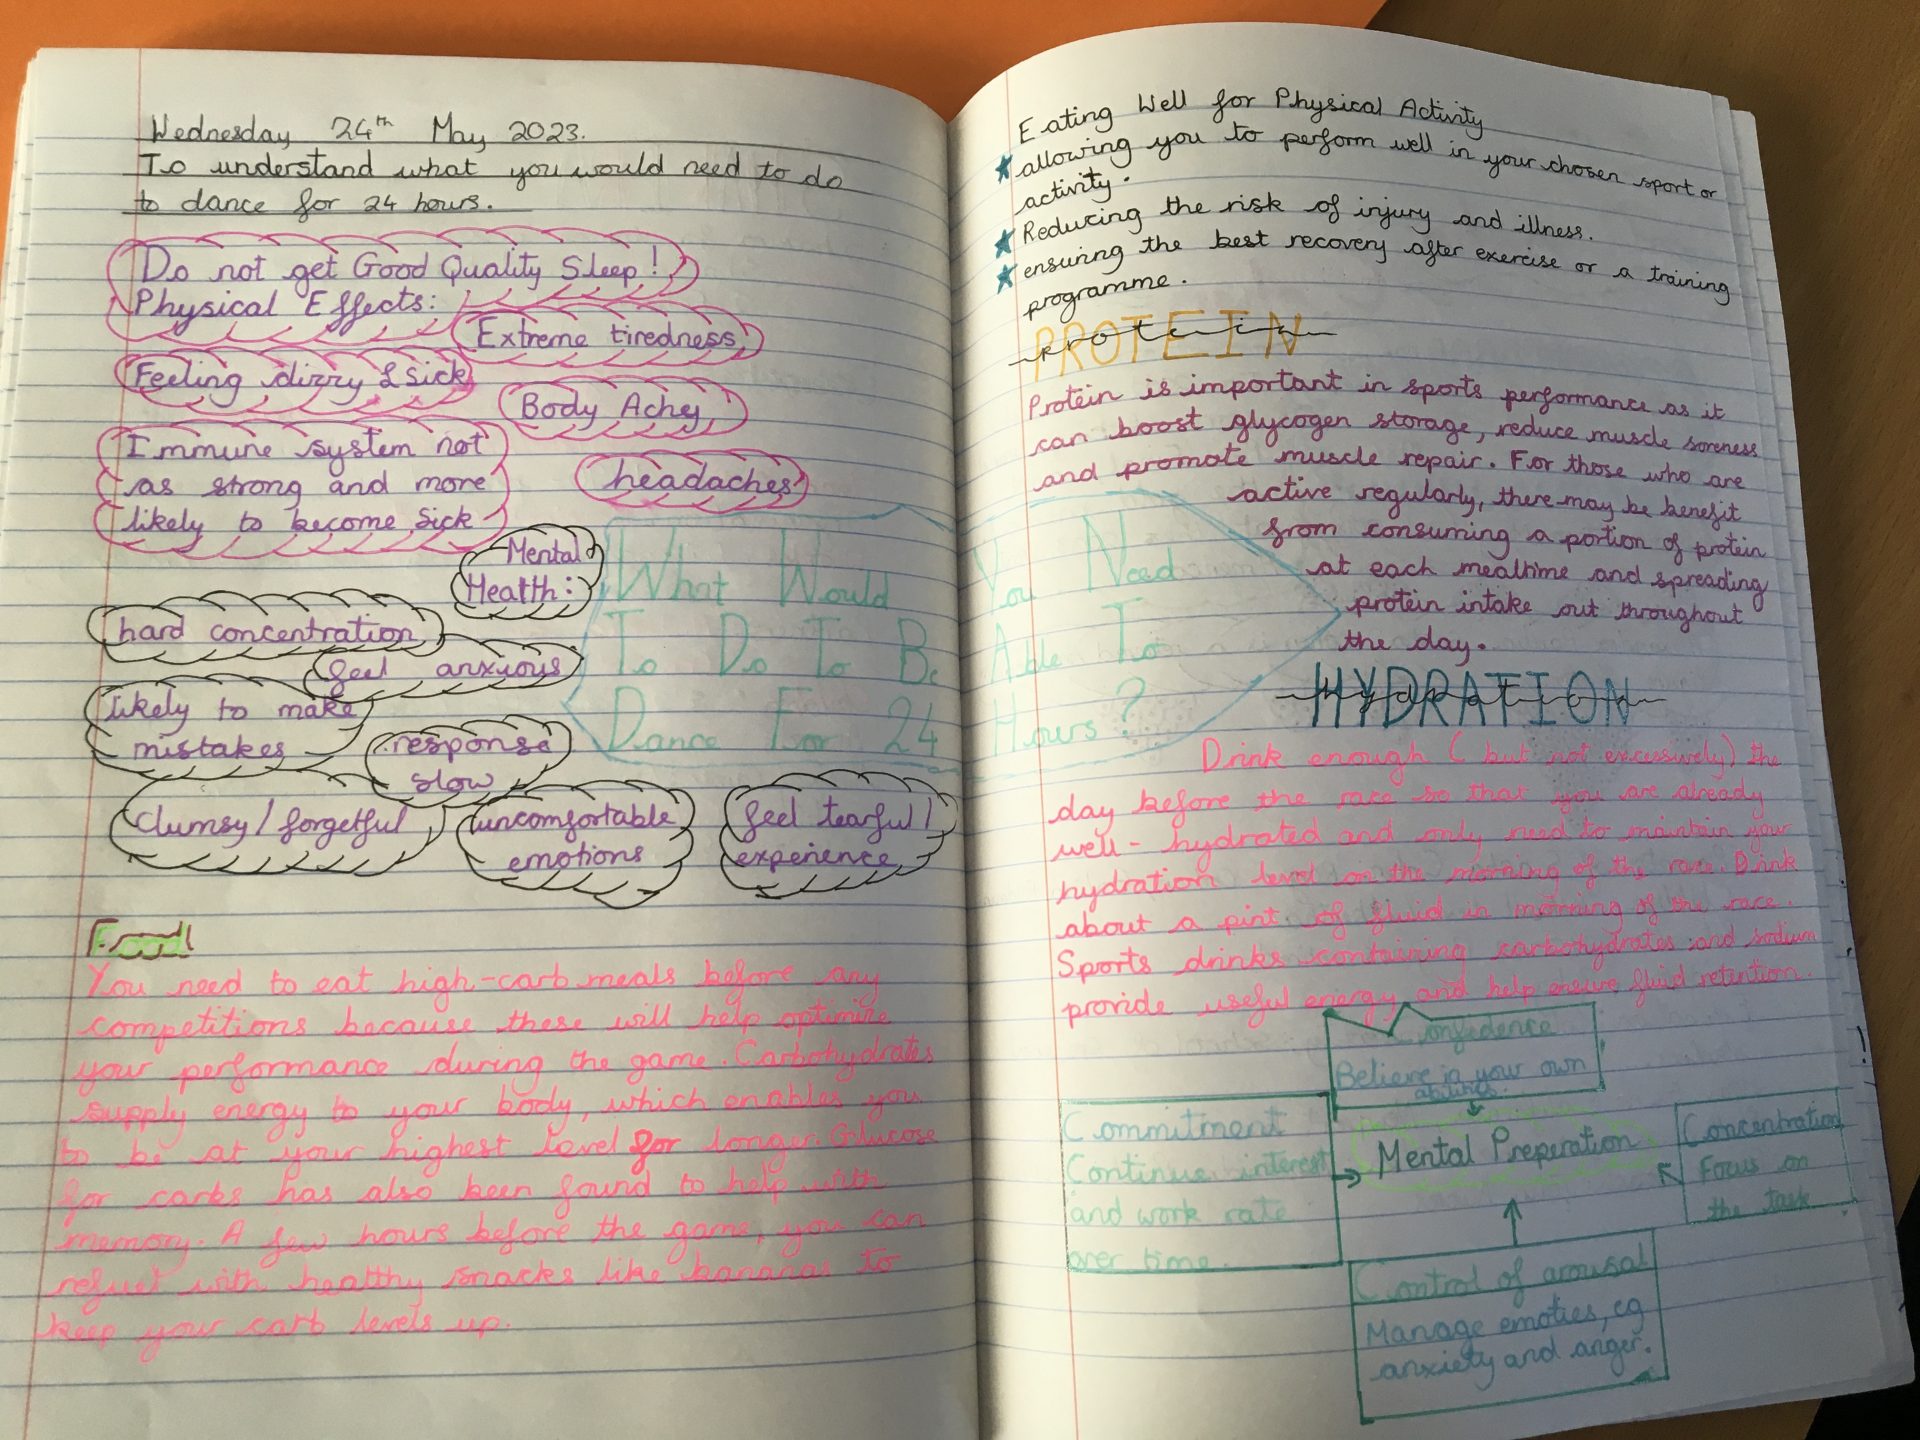 Wednesday 24th May 2023.
To understand what you would need to do
to dance for 24 hours.
Do not get Good Quality Sleep!
Physical Effects:
Extreme tiredness
Feeling dizzy & sick
Body Achy
Immune system not
as strong and more
likely to become sick
headaches
Mental
Health:
hard concentration
feel anxious
likely to make
mistakes
response
slow
clumsy/forgetful
uncomfortable
emotions
feel tearful/
experience
What Would You Need
To Do To Be Able To
Dance For 24 Hours?
Food
You need to eat high-carb meals before any
competitions because these will help optimize
your performance during the game. Carbohydrates
supply energy to your body, which enables you
to be at your highest level for longer. Glucose
for carbs has also been found to help with
memory. A few hours before the game, you can
refuel with healthy snacks like bananas to
keep your carb levels up.
Eating Well for Physical Activity
allowing you to perform well in your chosen sport or
activity.
Reducing the risk of injury and illness.
ensuring the best recovery after exercise or a training
programme.
PROTEIN
protein
Protein is important in sports performance as it
can boost glycogen storage, reduce muscle soreness
and promote muscle repair. For those who are
active regularly, there may be benefit
from consuming a portion of protein
at each mealtime and spreading
protein intake out throughout
the day.
HYDRATION
hydration
Drink enough (but not excessively) the
day before the race so that you are already
well-hydrated and only need to maintain your
hydration level on the morning of the race. Drink
about a pint of fluid in morning of the race.
Sports drinks containing carbohydrates and sodium
provide useful energy and help ensure fluid retention.
Confidence
Believe in your own
abilities.
Commitment
Continue interest
and work rate
over time.
Mental Preperation
Concentration
Focus on
the task
Control of arousal
Manage emoties, eg
anxiety and anger.